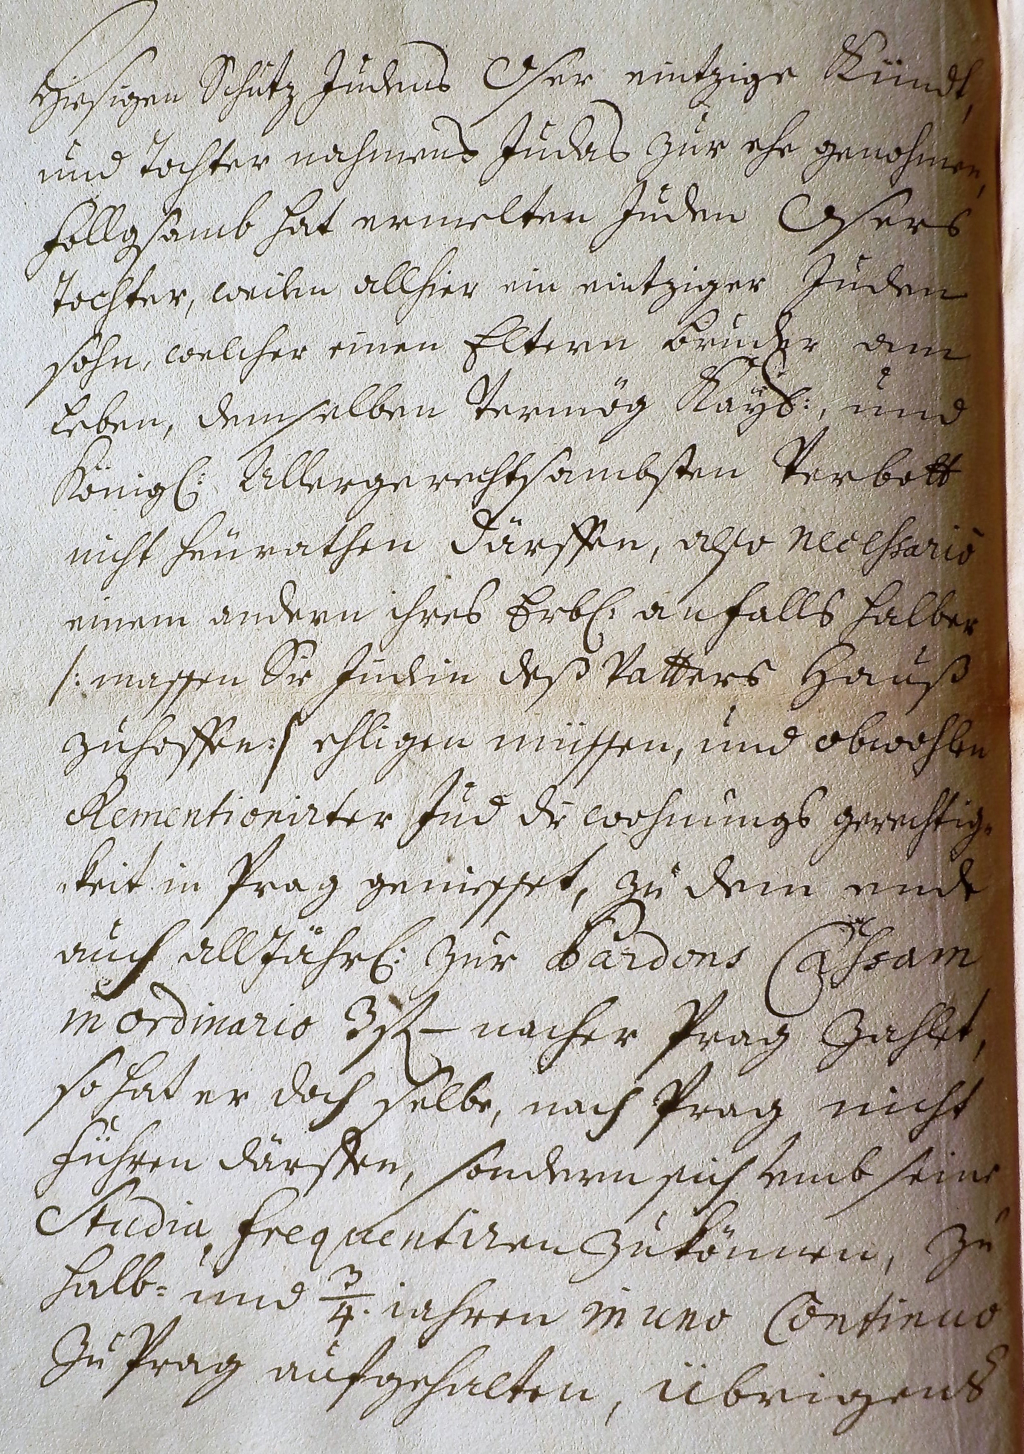 Hiesigen Schutz Judens Oser eintzige Kündt,
und Tochter nahmens Judas zur ehe genohmen,
follgsamb hat ermelten Juden Osers
Tochter, weilen allhier ein eintziger Juden
sohn, welcher einen Eltern bruder am
Leben, demselben Vermög Kays:, und
Königl: Allergerechtsambsten Verbott
nicht heurathen därffen, also necessario
einem andern ihres Erbl: anfalls halber
/: massen Sie Judin deß Vatters Hauß
zuhoffen :/ ehligen müssen, und obwohlen
Rementionirter Jud die wohnungs gerechtig-
-keit in Prag geniesset, zu dem ende
auch alljährl: zur Pardons Cassam
in ordinario 3 f – nacher Prag zahlet,
so hat er doch selbe, nach Prag nicht
führen därffen, sondern sich umb seine
Studia frequentiren zukönnen, zu
halb- und 3/4. iahren in uno Continuo
zu Prag aufgehalten, übrigens